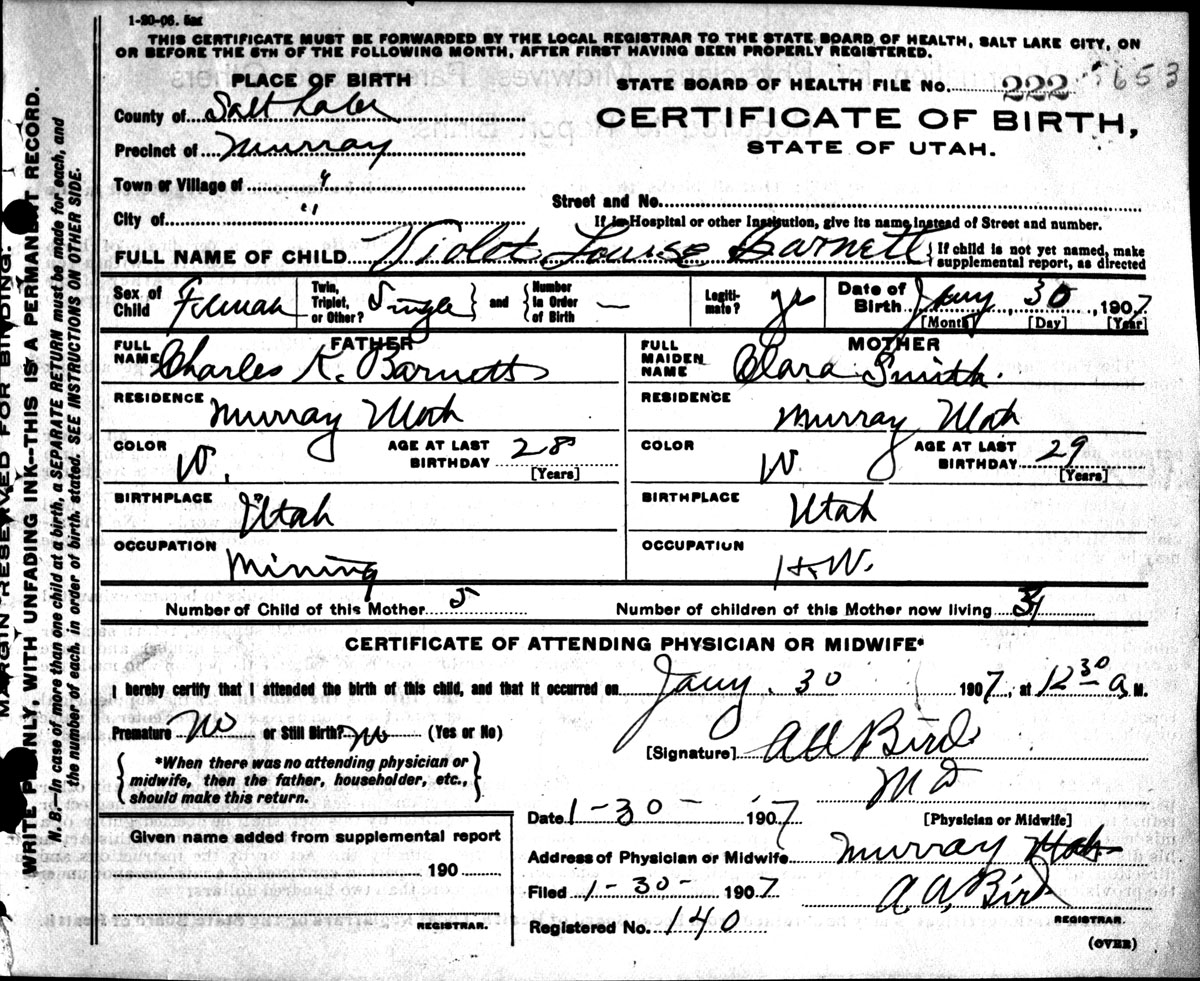 1-20-06. 5m
THIS CERTIFICATE MUST BE FORWARDED BY THE LOCAL REGISTRAR TO THE STATE BOARD OF HEALTH, SALT LAKE CITY, ON
OR BEFORE THE 5TH OF THE FOLLOWING MONTH, AFTER FIRST HAVING BEEN PROPERLY REGISTERED.
PLACE OF BIRTH
STATE BOARD OF HEALTH FILE No. 222 653
County of Salt Lake
CERTIFICATE OF BIRTH,
Precinct of Murray
STATE OF UTAH.
Town or Village of "
Street and No.
City of "
If in Hospital or other Institution, give its name instead of Street and number.
FULL NAME OF CHILD Violet Louise Barnett { If child is not yet named, make supplemental report, as directed
Sex of Child Female Twin, Triplet, or Other? Single } and { Number in Order of Birth — Legitimate? yes Date of Birth Jany 30, 1907
[Month] [Day] [Year]
FATHER
FULL NAME Charles K. Barnett
MOTHER
FULL MAIDEN NAME Clara Smith.
RESIDENCE Murray Utah
RESIDENCE Murray Utah
COLOR W. AGE AT LAST BIRTHDAY 28 [Years]
COLOR W AGE AT LAST BIRTHDAY 29 [Years]
BIRTHPLACE Utah
BIRTHPLACE Utah
OCCUPATION Mining
OCCUPATION H.W.
Number of Child of this Mother 5 Number of children of this Mother now living
CERTIFICATE OF ATTENDING PHYSICIAN OR MIDWIFE*
I hereby certify that I attended the birth of this child, and that it occurred on Jany. 30 1907, at 12 30 a M.
Premature No or Still Birth? No (Yes or No)
[Signature] AA Bird
MD
[Physician or Midwife]
{ *When there was no attending physician or
midwife, then the father, householder, etc.,
should make this return. }
Date 1-30- 1907
Given name added from supplemental report
190
REGISTRAR.
Address of Physician or Midwife Murray Utah
Filed 1-30- 1907 A. A. Bird
REGISTRAR.
Registered No. 140
(OVER)
MARGIN RESERVED FOR BINDING.
WRITE PLAINLY, WITH UNFADING INK--THIS IS A PERMANENT RECORD.
N. B.—In case of more than one child at a birth, a SEPARATE RETURN must be made for each, and
the number of each, in order of birth, stated. SEE INSTRUCTIONS ON OTHER SIDE.